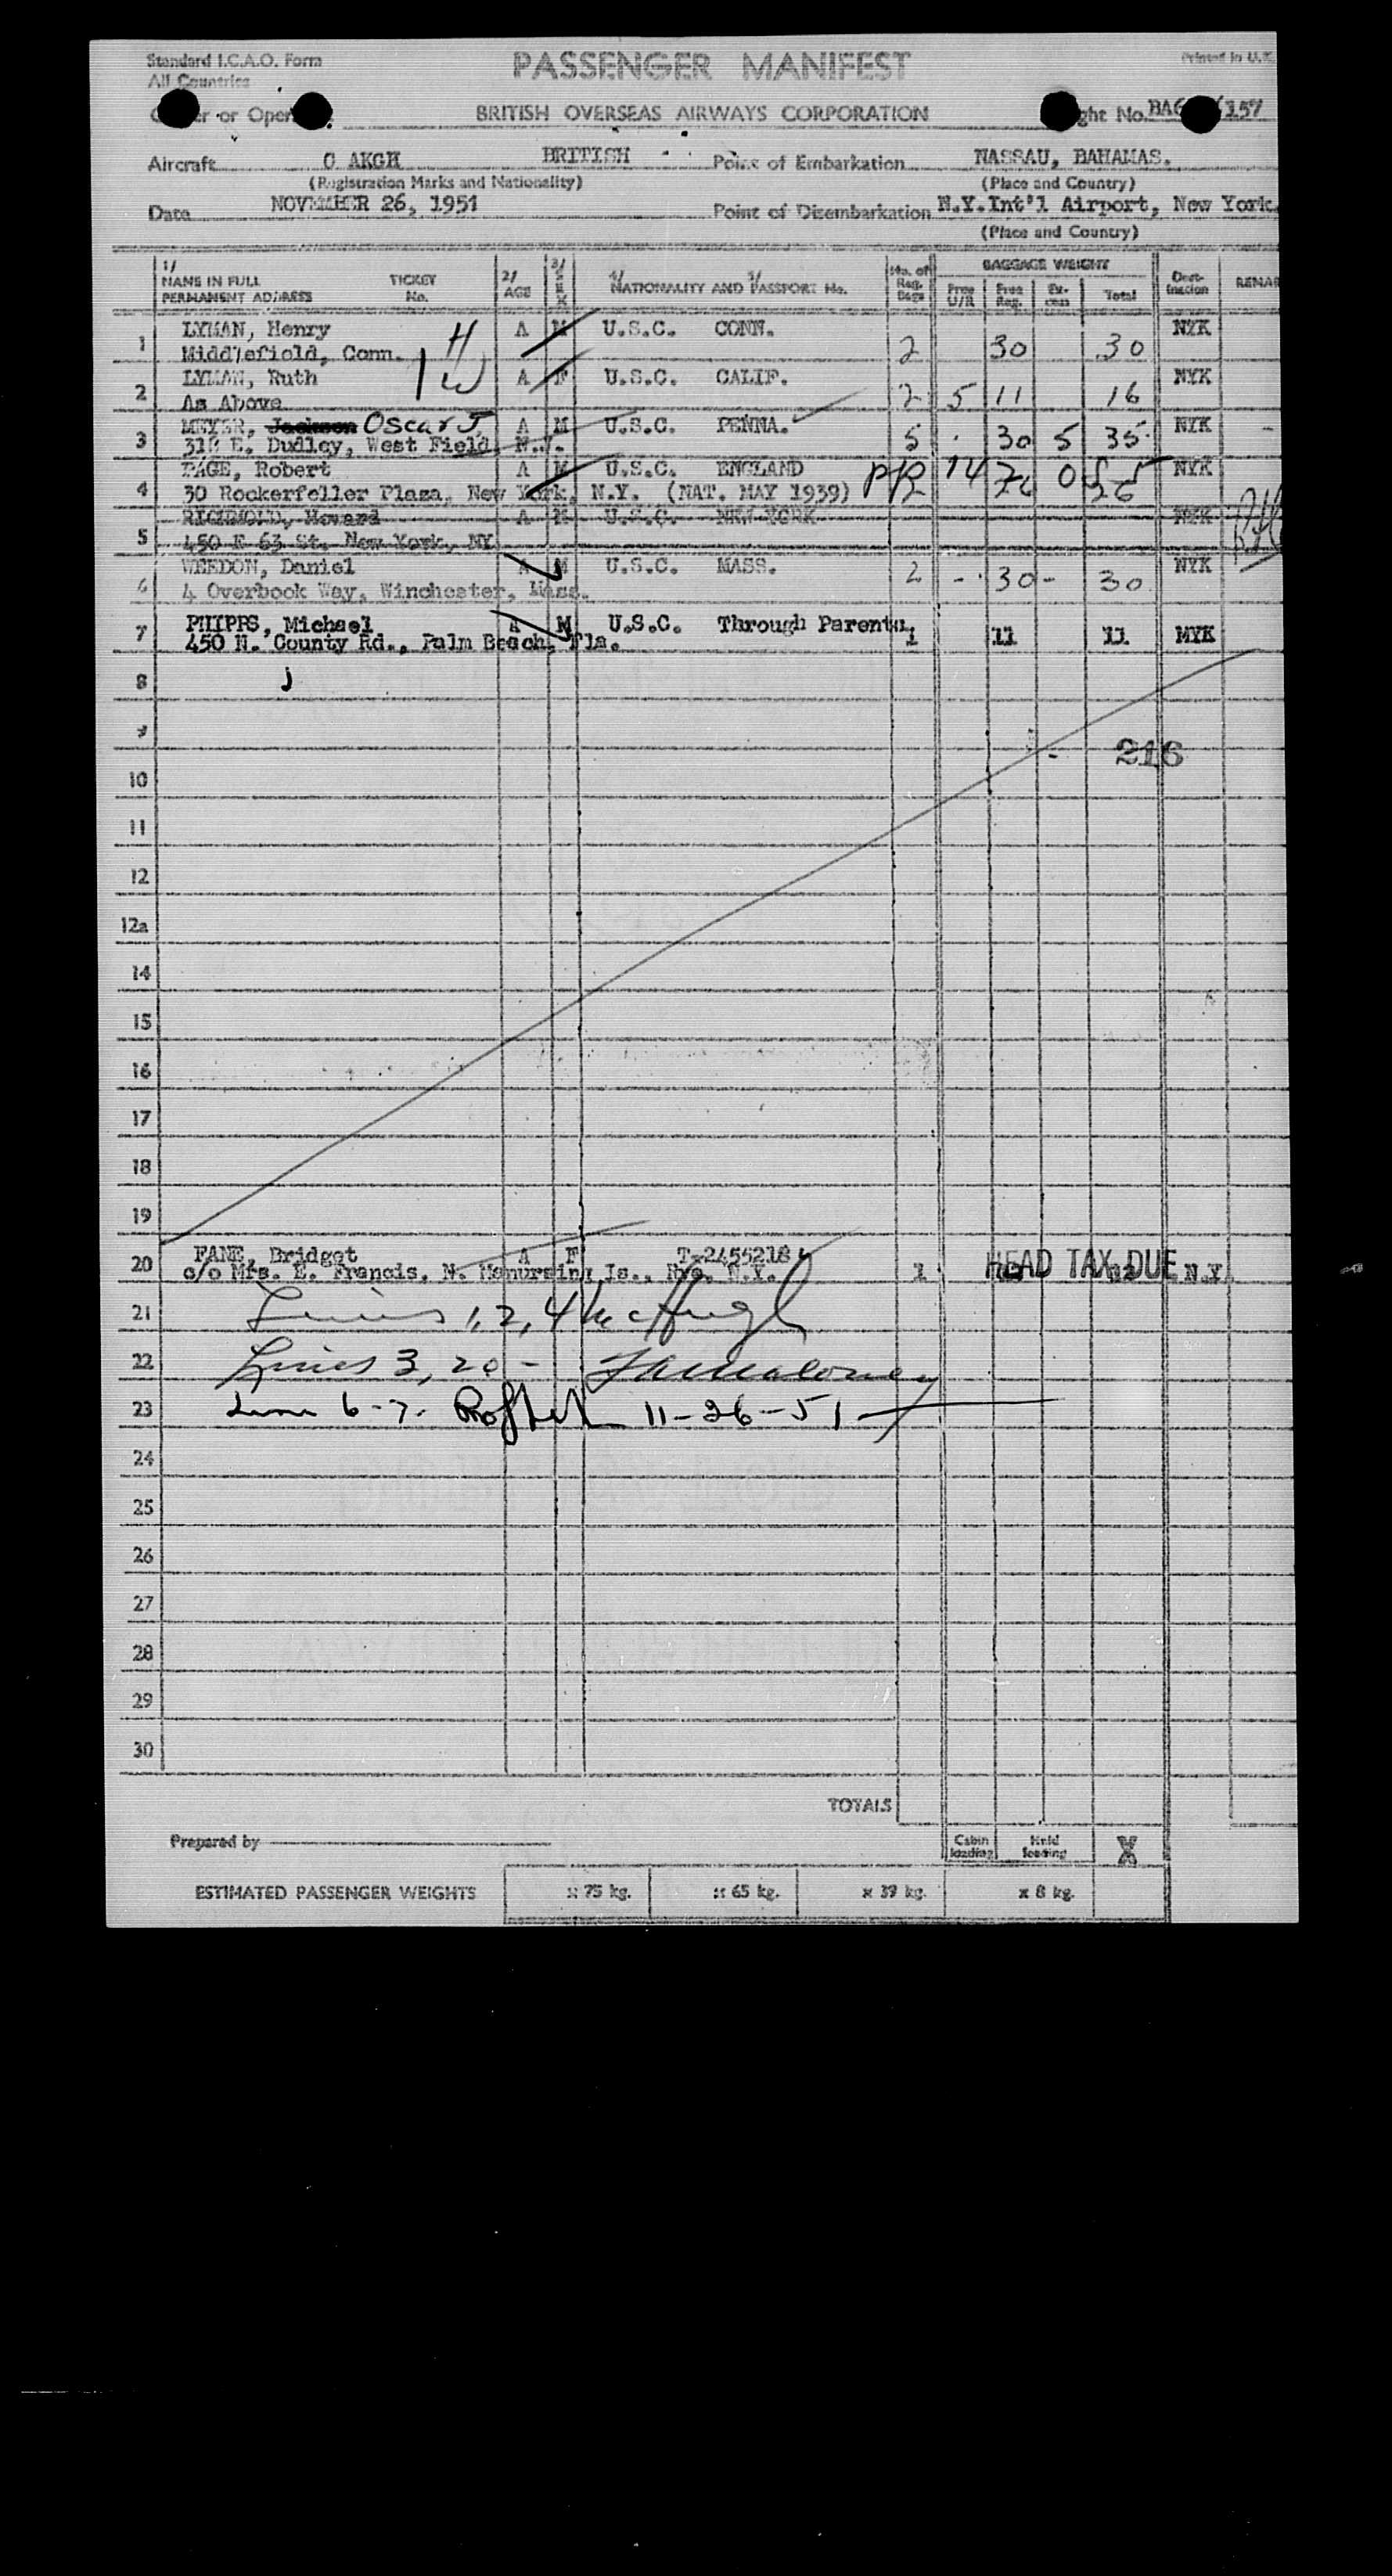 Standard I.C.A.O. Form
All Countries
PASSENGER MANIFEST
Printed in U.K.
or Oper
BRITISH OVERSEAS AIRWAYS CORPORATION
ght No. BA6 /157
Aircraft G AKGH BRITISH Point of Embarkation NASSAU, BAHAMAS.
(Registration Marks and Nationality) (Place and Country)
Date NOVEMBER 26, 1951 Point of Disembarkation N.Y.Int'l Airport, New York.
(Place and Country)
1/ NAME IN FULL TICKET 2/ AGE 3/ SEX 4/ NATIONALITY AND 5/ PASSPORT No. No. of Reg. Bags BAGGAGE WEIGHT Dest-ination REMAR
PERMANENT ADDRESS No. Free U/R Free Reg. Ex-cess Total
1 LYMAN, Henry H A M U.S.C. CONN. 2 30 30 NYK
Middlefield, Conn.
2 LYMAN, Ruth 1 W A F U.S.C. CALIF. 2 5 11 16 NYK
As Above
3 MEYER, Jackson Oscar J. A M U.S.C. PENNA. 5 30 5 35 NYK
E. Dudley, West Field, N.J.
4 PAGE, Robert A M U.S.C. ENGLAND 14 NYK
30 Rockerfeller Plaza, New York, N.Y. (NAT. MAY 1939)
5 RICHMOND, Howard A M U.S.C. NEW YORK NYK
450 E 63 St. New York, NY
6 WEEDON, Daniel A M U.S.C. MASS. 2 - 30 - 30 NYK
4 Overbook Way, Winchester, Mass.
7 PHIPPS, Michael A M U.S.C. Through Parents. 1 11 11 NYK
450 N. County Rd., Palm Beach, Fla.
8
9
216
10
11
12
12a
14
15
16
17
18
19
20 FANE, Bridget A F T-2455218
c/o Mrs. E. Francis, N. Manursing Is., Rye, N.Y. 1 HEAD TAX DUE N.Y.
21 Lines 1, 2, 4 McHugh
22 Lines 3, 20 -
23 Line 6-7. 11-26-51
24
25
26
27
28
29
30
TOTALS
Prepared by
Cabin loading Hold loading X
ESTIMATED PASSENGER WEIGHTS x 75 kg. x 65 kg. x 39 kg. x 8 kg.